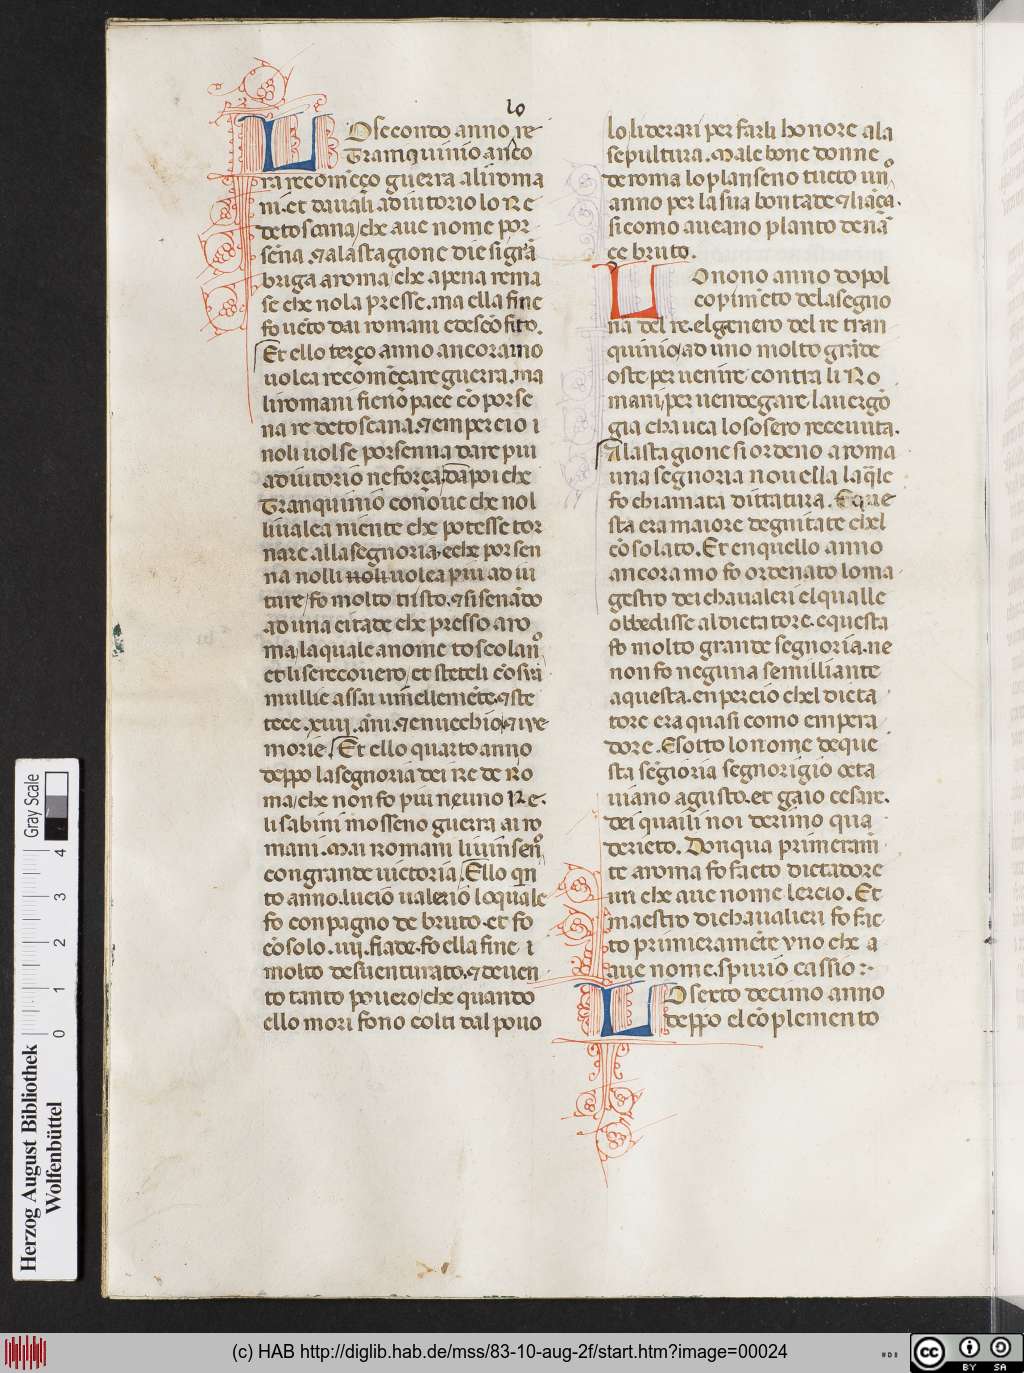 lo
LO secondo anno re
Tramquinio anco
ra recomẽço guerra ali roma
ni. et dauali adiutorio lo Re
de toscana/che aue nome por
sẽna. ⁊ ala stagione die si grã
briga a roma/che apena rema
se che no la presse. ma ella fine
fo uẽto dai romani e descõfito.
Et ello terço anno ancora ino
uolea recomẽçare guerra. ma
li romani fienõ pace cõ porse
na re de toscana. ⁊ em percio i
noli uolse porsenna dare piu
adiutorio ne força. dapoi che
Tranquinio conoue che nol
li ualea niente che potesse tor
nare alla segnoria. e che porsen
na nolli noli uolea piu ad iu
tare/fo molto tristo. ⁊ si se nãdo
ad una citade che presso a ro
ma/la quale a nome toscolanº
et li se recouero/et steteli cõ sua
mullie assai uinellemẽte. ⁊ ste
tece .xiiij. ãni. ⁊ enuechio/⁊ iue
morie. Et ello quarto anno
deppo la segnoria dei re de ro
ma/che non fo piu neuno Re.
li sabini mosseno guerra ai ro
mani. Mai Romani li uinsenº
con grande uictoria. Ello qn
to anno. lucio ualerio lo quale
fo conpagno de bruto. et fo
cõsolo .iiij. fiade. fo ella fine i
molto desuenturato. ⁊ deuen
to tanto pouero/che quando
ello mori fono colti dal pouo
lo li derari per farli honore ala
sepultura. Male bone donne
de roma lo planseno tucto unº
anno per la sua bontade ⁊ liãça.
si como aueano planto denã
ce bruto.
LO nono anno dopol
copimẽto de la segno
na del re. el genero del re tran
quinio/ad uno molto grãde
oste per uenire contra li Ro
mani/per uendegare la uergõ
gia cha uea lo sosero receuuta.
Ala stagione si ordeno a roma
una segnoria nouella la qle
fo chiamata dittatura. E que
sta era maiore degnitate chel
cõsolato. Et en quello anno
ancora mo fo ordenato lo ma
gestro dei chaualeri el qualle
obbedisse al dictatore. e questa
fo molto grande segnoria. ne
non fo neguna semilliante
a questa. en percio chel dicta
tore era quasi como empera
dore. E sotto lo nome de que
sta sẽgioria segnorigio octa
uiano agusto. et gaio cesare.
dei quaili noi derimo qua
derieto. Donqua primeramẽ
te a roma fo facto dictadore
un che aue nome lercio. Et
maestro di chaualieri fo fac
to primieramẽte uno che a
aue nome. spurio cassio :-
LO sexto decimo anno
deppo el cõplemento
Herzog August Bibliothek
Wolfenbüttel
Gray Scale
0 1 2 3 4
(c) HAB http://diglib.hab.de/mss/83-10-aug-2f/start.htm?image=00024
cc BY SA